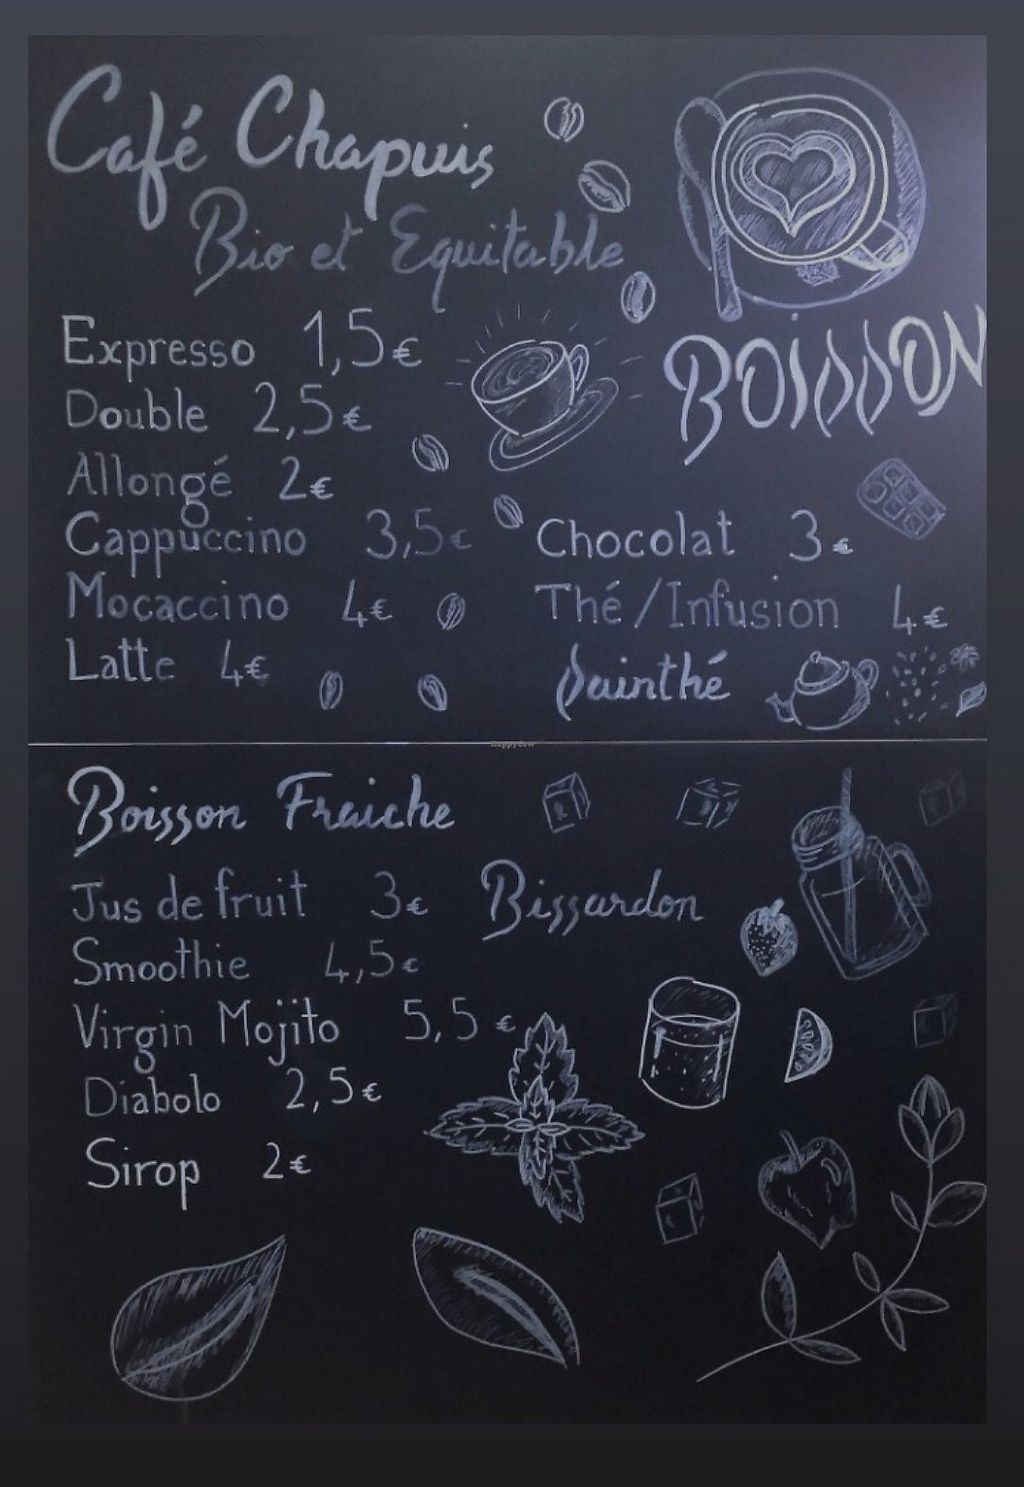 Café Chapuis
Bio et Equitable
BOISSON
Expresso 1,5€
Double 2,5€
Allongé 2€
Cappuccino 3,5€
Mocaccino 4€
Latte 4€
Chocolat 3€
Thé/Infusion 4€
Dainthé
HappyCow
Boisson Fraiche
Jus de fruit 3€ Bissardon
Smoothie 4,5€
Virgin Mojito 5,5€
Diabolo 2,5€
Sirop 2€